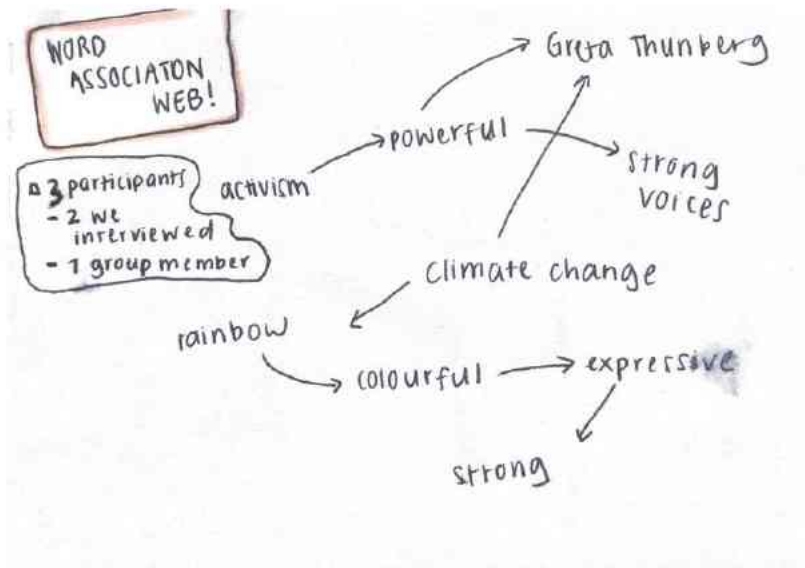 WORD
ASSOCIATON
WEB!
3 participants
- 2 we
interviewed
- 1 group member
activism
powerful
Greta Thunberg
strong
voices
climate change
rainbow
colourful
expressive
strong